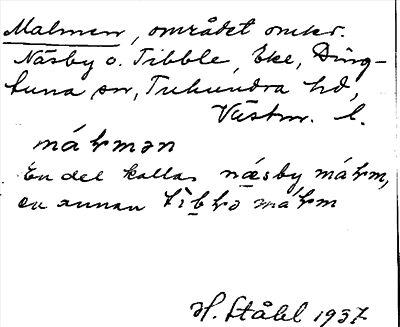 Malmen, området omkr.
Näsby o. Tibble, Eke, Ding-
tuna sn, Tuhundra hd,
Västm. l.
máɫmən
En del kallas næsby máɫm,
en annan tìbɫə máɫm
H. Ståhl 1937